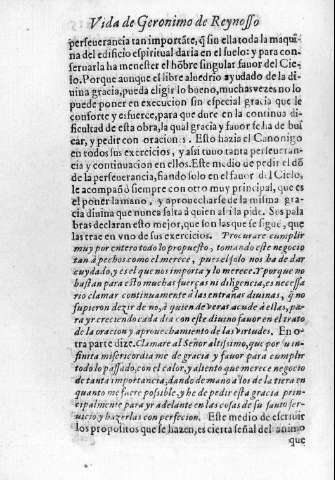 Vida de Geronimo de Reynosso
perseuerancia tan importãte, q̃ sin ella toda la maqui
na del edificio espiritual daria en el suelo: y para con-
seruarla ha menester el hõbre singular fauor del Cie-
lo. Porque aunque el libre aluedrio ayudado de la di-
uina gracia, pueda eligir lo bueno, muchas vezes no lo
puede poner en execucion sin especial gracia que le
conforte y esfuerce, para que dure en la continua di-
ficultad de esta obra, la qual gracia y fauor se ha de bus
car, y pedir con oraciones. Esto hazia el Canonigo
en todos sus exercicios, y assi tuuo tanta perseueran-
cia y continuacion en ellos. Este medio de pedir el dõ
de la perseuerancia, fiando solo en el fauor del Cielo,
le acompañò siempre con otro muy principal, que es
el poner la mano, y aprouecharse de la misma gra-
cia diuina que nunca falta à quien assi la pide. Sus pala
bras declaran esto mejor, que son las que se siguē, que
las trae en vno de sus exercicios. Procurare cumplir
muy por entero todo lo propuesto, tomando este negocio
tan à pechos como el merece, pues el solo nos ha de dar
cuydado, y es el que nos importa y lo merece. Y porque no
bastan para esto muchas fuerças ni diligencia, es necessa
rio clamar continuamente à las entrañas diuinas, q̃ no
supieron dezir de no, à quien de veras acude à ellas, pa-
ra yr creciendo cada dia con este diuino fauor en el trato
de la oracion y aprouechamiento de las virtudes. En o-
tra parte dize. Clamare al Señor altissimo, que por su in-
finita misericordia me de gracia y fauor para cumplir
todo lo passado, con el calor, y aliento que merece negocio
de tanta importancia, dando de mano à los de la tierra en
quanto me fuere possible, y he de pedir esta gracia prin-
cipalmente para yr adelante en las cosas de su santo ser-
uicio, y hazerlas con perfecion. Este medio de escriuir
los propositos que se hazen, es cierta señal del animo
que